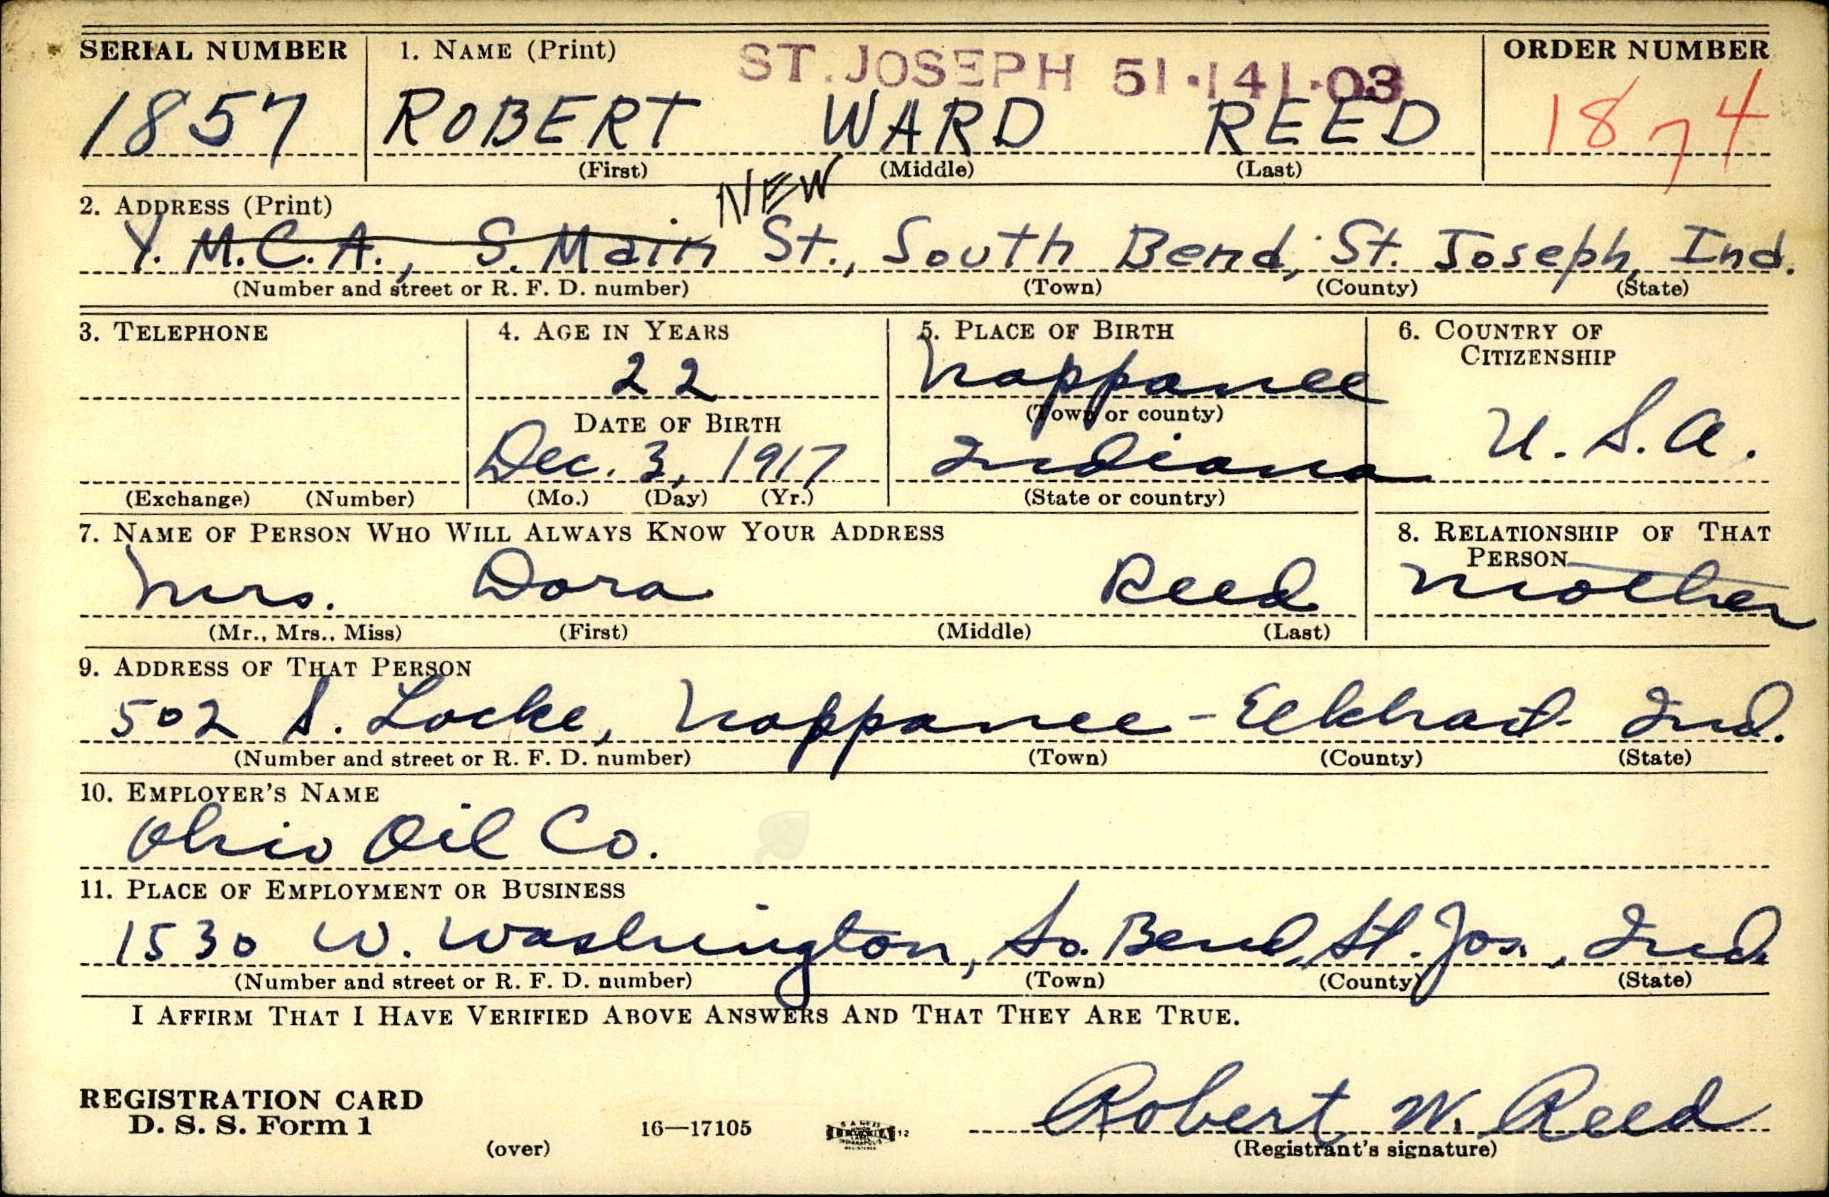 SERIAL NUMBER 1. NAME (Print) ST. JOSEPH 51-141-03 ORDER NUMBER
1857 ROBERT WARD REED 1874
(First) (Middle) (Last)
NEW
2. ADDRESS (Print)
Y.M.C.A., S. Main St., South Bend, St. Joseph, Ind.
(Number and street or R. F. D. number) (Town) (County) (State)
3. TELEPHONE 4. AGE IN YEARS 5. PLACE OF BIRTH 6. COUNTRY OF
CITIZENSHIP
22 Nappanee
(Town or county)
DATE OF BIRTH U.S.A.
Dec. 3, 1917 Indiana
(Exchange) (Number) (Mo.) (Day) (Yr.) (State or country)
7. NAME OF PERSON WHO WILL ALWAYS KNOW YOUR ADDRESS 8. RELATIONSHIP OF THAT
PERSON
Mrs. Dora Reed Mother
(Mr., Mrs., Miss) (First) (Middle) (Last)
9. ADDRESS OF THAT PERSON
502 S. Locke, Nappanee - Elkhart - Ind.
(Number and street or R. F. D. number) (Town) (County) (State)
10. EMPLOYER'S NAME
Ohio Oil Co.
11. PLACE OF EMPLOYMENT OR BUSINESS
1530 W. Washington, So. Bend, St. Jos., Ind.
(Number and street or R. F. D. number) (Town) (County) (State)
I AFFIRM THAT I HAVE VERIFIED ABOVE ANSWERS AND THAT THEY ARE TRUE.
REGISTRATION CARD
D. S. S. Form 1 Robert W. Reed
(over) 16—17105 12 (Registrant's signature)